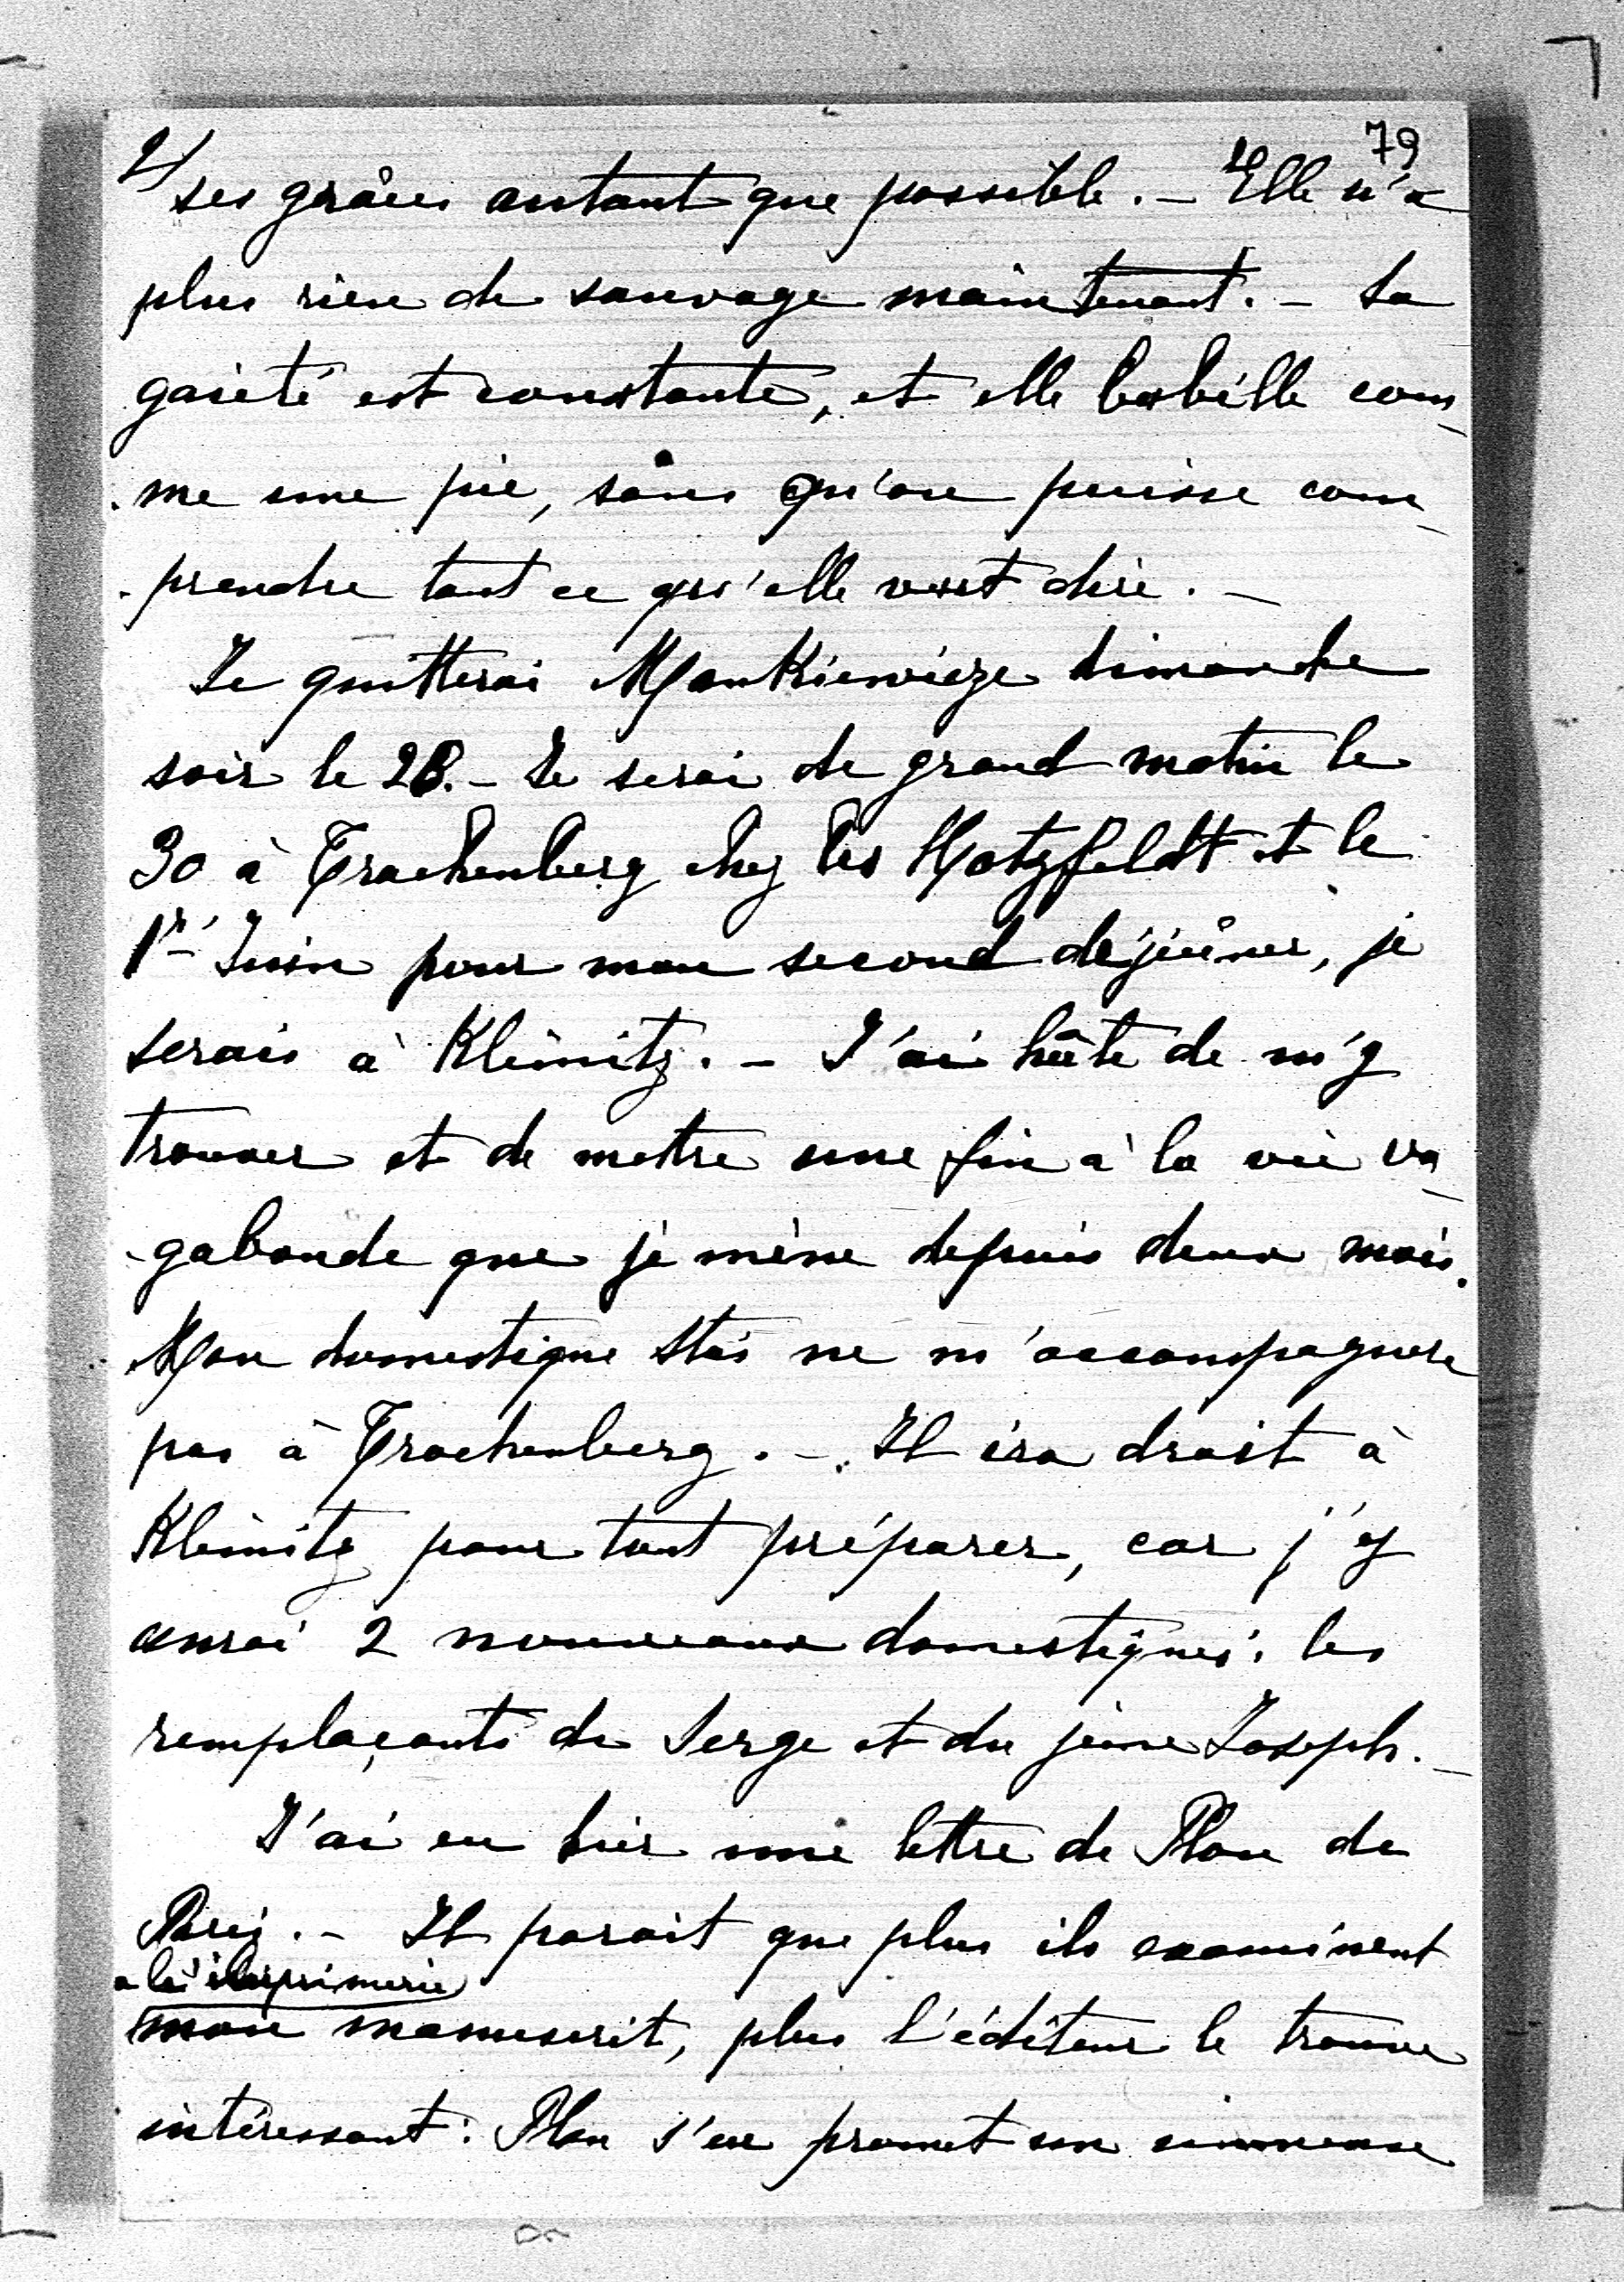 2/
79
ses grâces autant que possible. – Elle n'a
plus rien de sauvage maintenant. – Sa
gaieté est constante, et elle babille com-
-me une pie, sans qu'on puisse com-
-prendre tout ce qu'elle veut dire. –
Je quitterai Mankiewicze dimanche
soir le 28. – Je serai de grand matin le
30 à Trachenberg chez les Hatzfeldt et le
1r Juin pour mon second déjeûner, je
serais à Kleinitz. – J'ai hâte de m'y
trouver et de mettre une fin à la vie va-
-gabonde que je mène depuis deux mois.
Mon domestique Stas ne m'accompagnera
pas à Trachenberg. – Il ira droit à
Kleinitz pour tout préparer, car j'y
aurai 2 nouveaux domestiques: les
remplaçants de Serge et du jeune Joseph. –
J'ai eu hier une lettre de Plon de
Paris. – Il parait que plus ils examinent
a le imprimerie
mon manuscrit, plus l'éditeur le trouve
intéressant: Plon s'en promet un immense